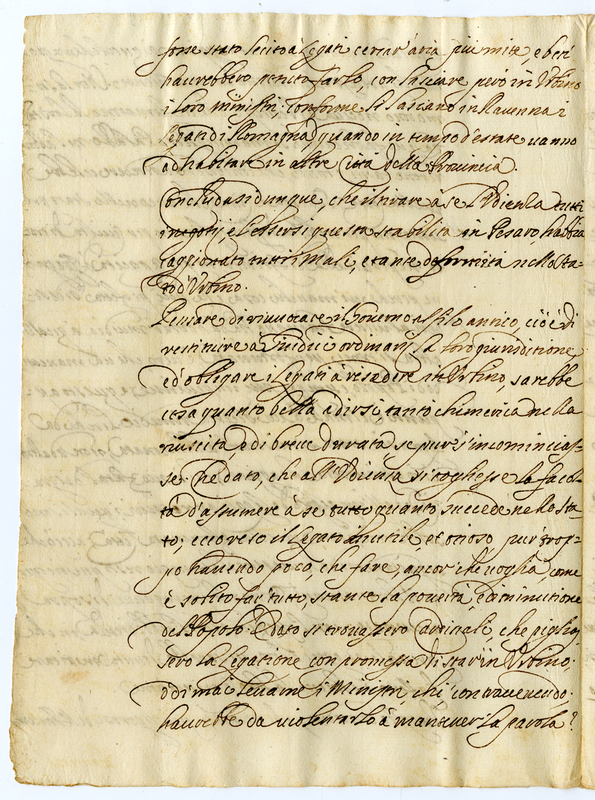 forse stato lecito à Legati cercar' aria piu mite, e ben
haurebbero potuto farlo, con lasciare però in Urbino
i loro ministri; conforme si lasciano in Ravenna i
Legati di Romagna, quando in tempo d'estate vanno
ad habitare in altre Città della Provincia.
Concludasi dunque, che il tirare à se l'Udienza tutti
i negotij, e l'essersi questa stabilita in Pesaro habbia
cagionato tutti i mali, e tante deformità nello Sta-
to d'Urbino.
Pensare di rivvocare il Governo allo stilo antico, cioè di
restituire à Giudici ordinarij la loro giurisditione
ed obligare i Legati à resedere in Urbino, sarebbe
cosa quanto bella à dirsi, tanto chimerica nella
riuscita, ò di breve durata, se pur s'incomincias-
se. Che dato, che all'Udienza si togliesse la facol-
tà d'assumere à se tutto quanto succede nello Sta-
to; eccovi reso il Legato inutile, et otioso pur trop-
po havendo poco, che fare, ancor che voglia, come
è solito far tutto, stante la povertà, e diminutione
del Popolo. E dato si trovassero Cardinali, che piglias-
sero la Legatione con promessa di star' in Urbino,
ò di mai levarne i Ministri, chi contravenendo
havrebbe da violentarlo à mantener la parola?